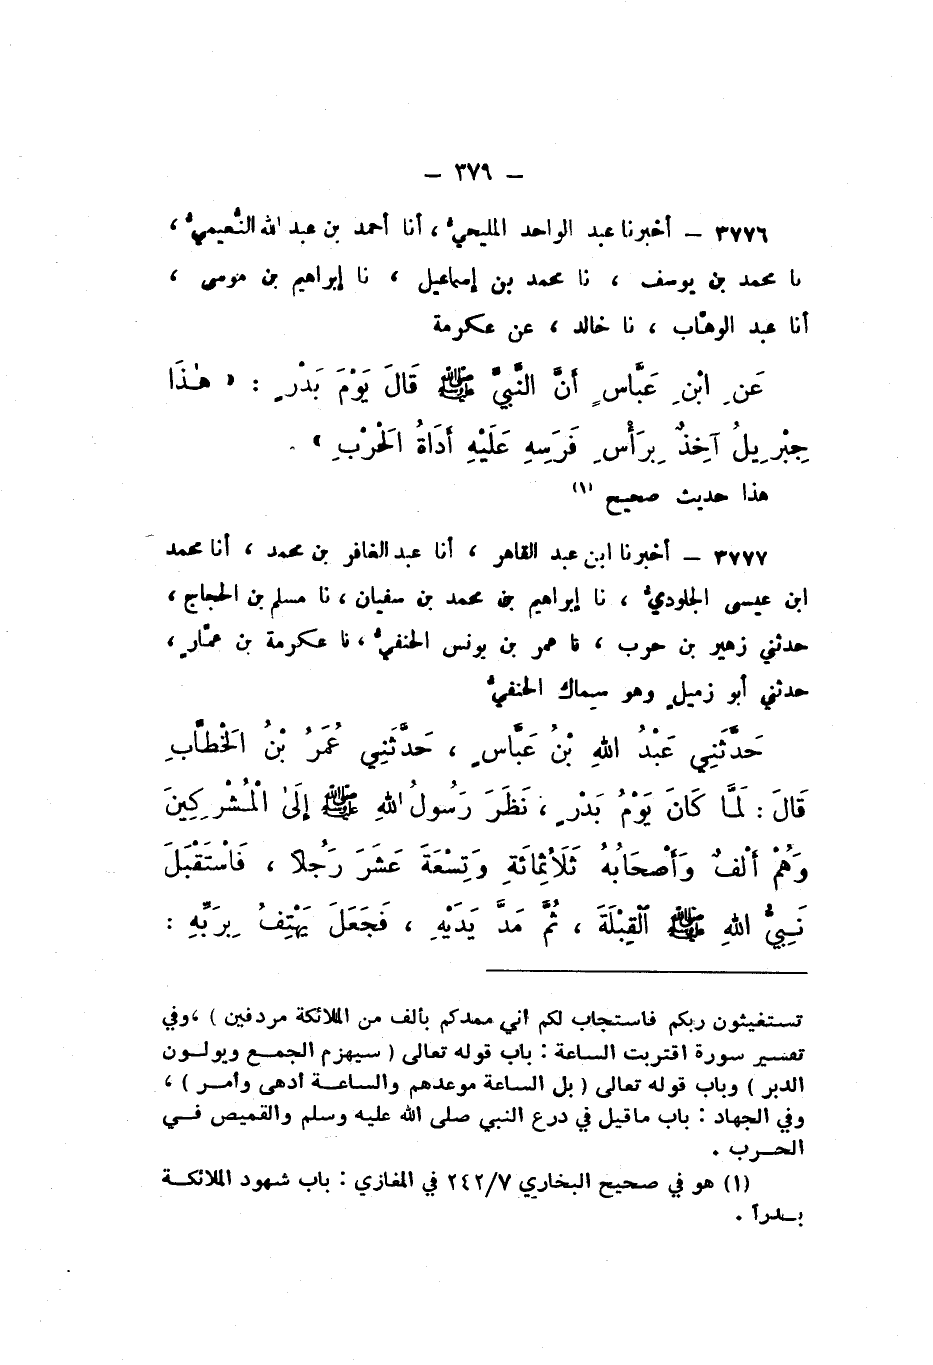 — ٣٧٩ —
٣٧٧٦ — أخبرنا عبد الواحد المليحيُّ ، أنا أحمد بن عبد الله النُّعيميُّ ،
نا محمد بن يوسف ، نا محمد بن إسماعيل ، نا إبراهيم بن موسى ،
أنا عبد الوهاب ، نا خالد ، عن عكرمة
عَنِ ابْنِ عَبَّاسٍ أَنَّ النَّبِيَّ ﷺ قَالَ يَوْمَ بَدْرٍ : « هٰذَا
جِبْرِيلُ آخِذٌ بِرَأْسِ فَرَسِهِ عَلَيْهِ أَدَاةُ الْحَرْبِ » .
هذا حديث صحيح (١)
٣٧٧٧ — أخبرنا ابن عبد القاهر ، أنا عبد الغافر بن محمد ، أنا محمد
ابن عيسى الجلوديُّ ، نا إبراهيم بن محمد بن سفيان ، نا مسلم بن الحجاج ،
حدثني زهير بن حرب ، نا عمر بن يونس الحنفيُّ ، نا عكرمة بن عمَّارٍ ،
حدثني أبو زميلٍ وهو سماك الحنفيُّ
حَدَّثَنِي عَبْدُ اللهِ بْنُ عَبَّاسٍ ، حَدَّثَنِي عُمَرُ بْنُ الْخَطَّابِ
قَالَ : لَمَّا كَانَ يَوْمُ بَدْرٍ ، نَظَرَ رَسُولُ اللهِ ﷺ إِلَىٰ الْمُشْرِكِينَ
وَهُمْ أَلْفٌ وَأَصْحَابُهُ ثَلَاثُمِائَةٍ وَتِسْعَةَ عَشَرَ رَجُلًا ، فَاسْتَقْبَلَ
نَبِيُّ اللهِ ﷺ الْقِبْلَةَ ، ثُمَّ مَدَّ يَدَيْهِ ، فَجَعَلَ يَهْتِفُ بِرَبِّهِ :
تستغيثون ربكم فاستجاب لكم أني ممدكم بألف من الملائكة مردفين ) ، وفي
تفسير سورة اقتربت الساعة : باب قوله تعالى ( سيهزم الجمع ويولون
الدبر ) وباب قوله تعالى ( بل الساعة موعدهم والساعة أدهى وأمر ) ،
وفي الجهاد : باب ماقيل في درع النبي صلى الله عليه وسلم والقميص في
الحرب .
(١) هو في صحيح البخاري ٢٤٢/٧ في المغازي : باب شهود الملائكة
بدراً .